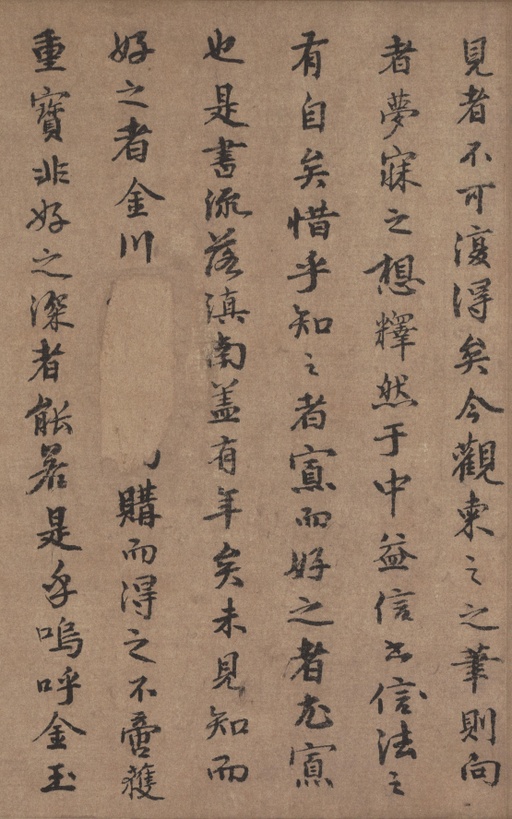 見者不可復得矣今觀柬之之筆則向
者夢寐之想釋然于中益信書信法之
有自矣惜乎知之者寡而好之者尤寡
也是書流落滇南蓋有年矣未見知而
好之者金川 購而得之不啻獲
重寶非好之深者能若是乎嗚呼金玉